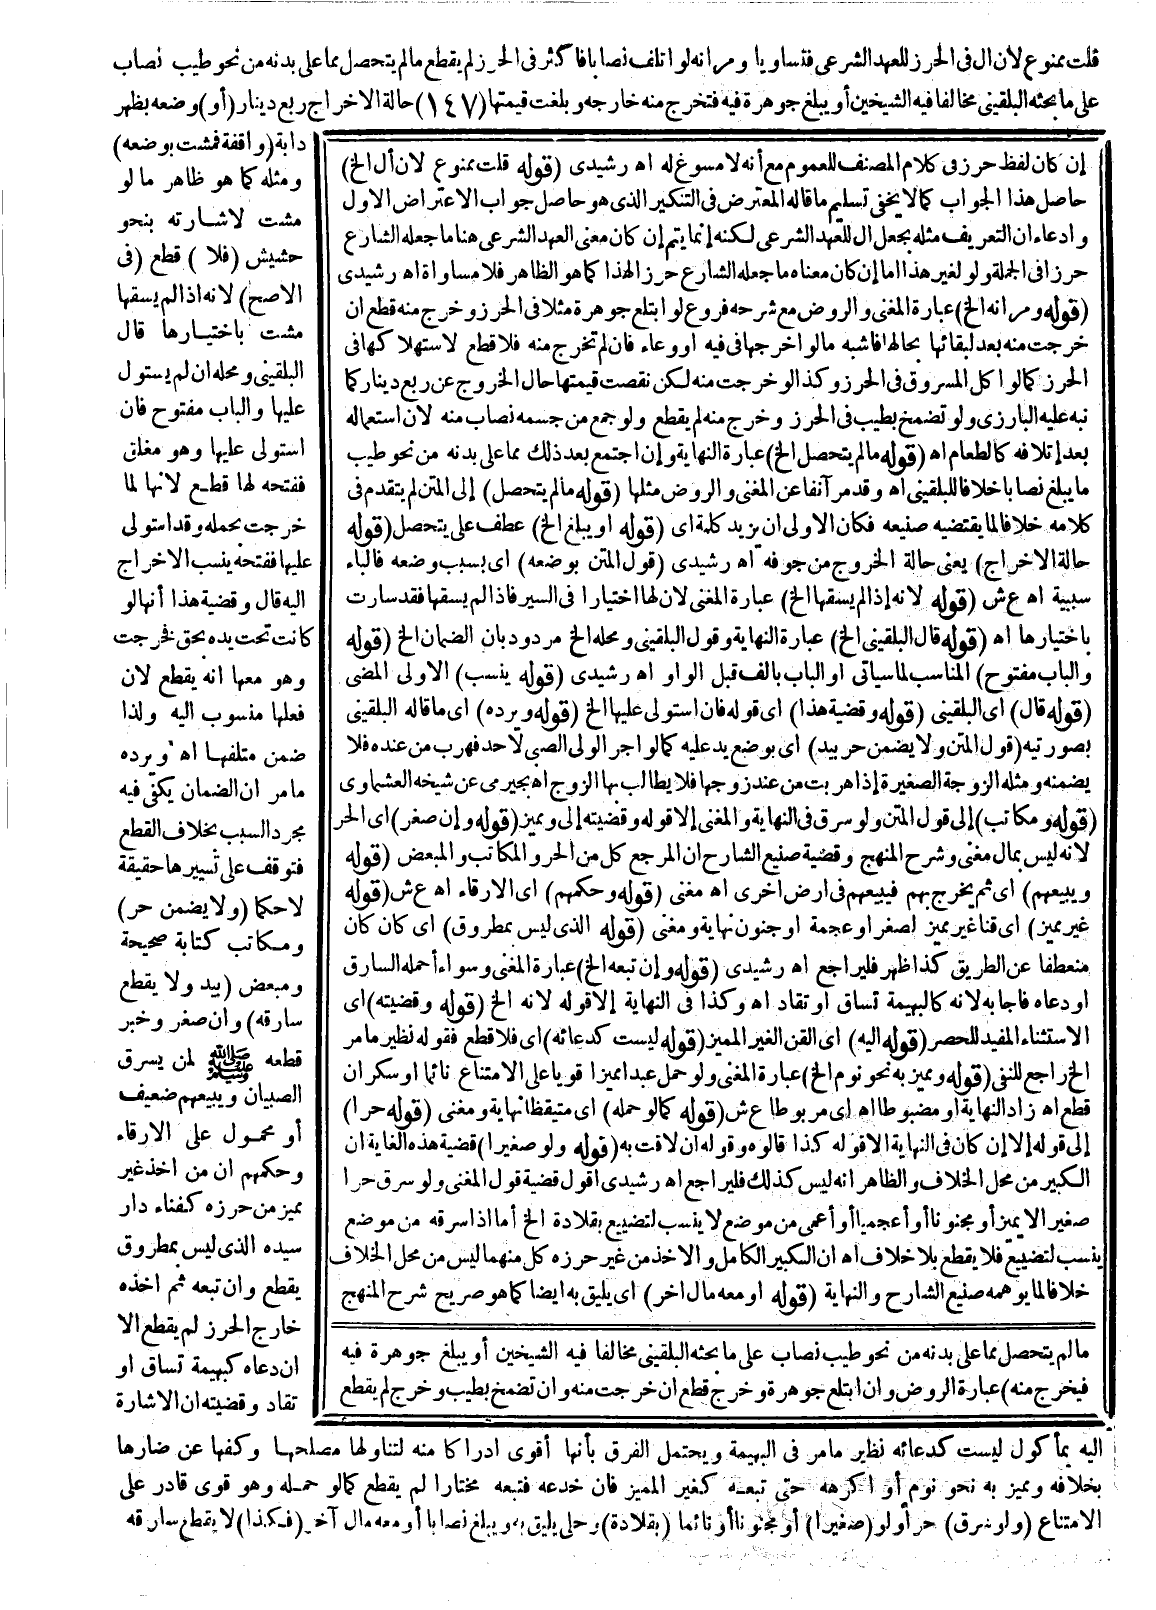 قلت ممنوع لان ال فى الحرز للعهد الشرعى فتساويا ومر انه لو اتلف نصابا فاكثر فى الحرز لم يقطع ما لم يتحصل مما على بدنه من نحو طيب نصاب
على ما بحثه البلقينى مخالفا فيه الشيخين أو يبلغ جوهرة فيه فتخرج منه خارجه وبلغت قيمتها (١٤٧) حالة الاخراج ربع دينار (أو) وضعه بظهر
دابة (واقفة فمشت بوضعه)
ومثله كما هو ظاهر ما لو
مشت لاشارته بنحو
حشيش (فلا) قطع (فى
الاصح) لانه اذا لم يسقها
مشت باختيارها قال
البلقينى ومحله ان لم يستول
عليها والباب مفتوح فان
استولى عليها وهو مغلق
ففتحه لها قطع لانها لما
خرجت بحمله وقد استولى
عليها ففتحه ينسب الاخراج
اليه قال وقضية هذا أنها لو
كانت تحت يده بحق فخرجت
وهو معها انه يقطع لان
فعلها منسوب اليه ولذا
ضمن متلفها اه ويرده
ما مر ان الضمان يكفى فيه
مجرد السبب بخلاف القطع
فتوقف على تسييرها حقيقة
لا حكما (ولا يضمن حر)
ومكاتب كتابة صحيحة
ومبعض (بيد ولا يقطع
سارقه) وان صغر وخبر
قطعه ﷺ لمن يسرق
الصبيان ويبيعهم ضعيف
أو محمول على الارقاء
وحكمهم ان من اخذ غير
مميز من حرزه كفناء دار
سيده الذى ليس بمطروق
يقطع وان تبعه ثم اخذه
خارج الحرز لم يقطع الا
ان دعاه كبهيمة تساق او
تقاد وقضيته ان الاشارة
إن كان لفظ حرز فى كلام المصنف للعموم مع أنه لا مسوغ له اه رشيدى (قوله قلت ممنوع لان أل الخ)
حاصل هذا الجواب كما لا يخفى تسليم ما قاله المعترض فى التنكير الذى هو حاصل جواب الاعتراض الاول
وادعاء ان التعريف مثله بجعل ال للعهد الشرعى لكنه إنما يتم إن كان معنى العهد الشرعى هنا ما جعله الشارع
حرزا فى الجملة ولو لغير هذا اما إن كان معناه ما جعله الشارع حرزا لهذا كما هو الظاهر فلا مساواة اه رشيدى
(قوله ومر انه الخ) عبارة المغنى والروض مع شرحه فروع لو ابتلع جوهرة مثلا فى الحرز وخرج منه قطع ان
خرجت منه بعد لبقائها بحالها فاشبه ما لو اخرجها فى فيه او وعاء فان لم تخرج منه فلا قطع لاستهلاكها فى
الحرز كما لو اكل المسروق فى الحرز وكذا لو خرجت منه لكن نقصت قيمتها حال الخروج عن ربع دينار كما
نبه عليه البارزى ولو تضمخ بطيب فى الحرز وخرج منه لم يقطع ولو جمع من جسمه نصاب منه لان استعماله
بعد إتلافه كالطعام اه (قوله ما لم يتحصل الخ) عبارة النهاية وإن اجتمع بعد ذلك مما على بدنه من نحو طيب
ما يبلغ نصابا خلافا للبلقينى اه وقد مر آنفا عن المغنى والروض مثلها (قوله ما لم يتحصل) إلى المتن لم يتقدم فى
كلامه خلافا لما يقتضيه صنيعه فكان الاولى ان يزيد كلمة اى (قوله او يبلغ الخ) عطف على يتحصل (قوله
حالة الاخراج) يعنى حالة الخروج من جوفه اه رشيدى (قول المتن بوضعه) اى بسبب وضعه فالباء
سببية اه ع ش (قوله لانه إذا لم يسقها الخ) عبارة المغنى لان لها اختيارا فى السير فاذا لم يسقها فقد سارت
باختيارها اه (قوله قال البلقينى الخ) عبارة النهاية وقول البلقينى ومحله الخ مردود بان الضمان الخ (قوله
والباب مفتوح) المناسب لما سياتى او الباب بالف قبل الواو اه رشيدى (قوله ينسب) الاولى المضى
(قوله قال) اى البلقينى (قوله وقضية هذا) اى قوله فان استولى عليها الخ (قوله ويرده) اى ما قاله البلقينى
بصورتيه (قول المتن ولا يضمن حر بيد) اى بوضع يد عليه كما لو اجر الولى الصبى لاحد فهرب من عنده فلا
يضمنه ومثله الزوجة الصغيرة إذا هربت من عند زوجها فلا يطالب بها الزوج اه بجيرمى عن شيخه العشماوى
(قوله ومكاتب) إلى قول المتن ولو سرق فى النهاية والمغنى إلا قوله وقضيته إلى ومميز (قوله وإن صغر) اى الحر
لانه ليس بمال مغنى وشرح المنهج وقضية صنيع الشارح ان المرجع كل من الحر والمكاتب والمبعض (قوله
ويبيعهم) اى ثم يخرج بهم فيبيعهم فى ارض اخرى اه مغنى (قوله وحكمهم) اى الارقاء اه ع ش (قوله
غير مميز) اى قنا غير مميز لصغر او عجمة او جنون نهاية ومغنى (قوله الذى ليس بمطروق) اى كان كان
منعطفا عن الطريق كذا ظهر فليراجع اه رشيدى (قوله وإن تبعه الخ) عبارة المغنى وسواء أحمله السارق
او دعاه فاجابه لانه كالبهيمة تساق او تقاد اه وكذا فى النهاية إلا قوله لانه الخ (قوله وقضيته) اى
الاستثناء المفيد للحصر (قوله اليه) اى القن الغير المميز (قوله ليست كدعائه) اى فلا قطع فقوله نظير ما مر
الخ راجع للنفى (قوله ومميز به نحو نوم الخ) عبارة المغنى ولو حمل عبدا مميزا قويا على الامتناع نائما او سكران
قطع اه زاد النهاية او مضبوطا اه اى مربوطا ع ش (قوله كما لو حمله) اى متيقظا نهاية ومغنى (قوله حرا)
إلى قوله إلا إن كان فى النهاية الا قوله كذا قالوه وقوله ان لاقت به (قوله ولو صغيرا) قضية هذه الغاية ان
الكبير من محل الخلاف والظاهر انه ليس كذلك فليراجع اه رشيدى اقول قضية قول المغنى ولو سرق حرا
صغيرا لا يميز أو مجنونا أو أعجميا أو أعمى من موضع لا ينسب لتضييع بقلادة الخ أما اذا سرقه من موضع
ينسب لتضييع فلا يقطع بلا خلاف اه ان الكبير الكامل والاخذ من غير حرزه كل منهما ليس من محل الخلاف
خلافا لما يوهمه صنيع الشارح والنهاية (قوله او معه مال اخر) اى يليق به ايضا كما هو صريح شرح المنهج
ما لم يتحصل مما على بدنه من نحو طيب نصاب على ما بحثه البلقينى مخالفا فيه الشيخين أو يبلغ جوهرة فيه
فيخرج منه) عبارة الروض وان ابتلع جوهرة وخرج قطع ان خرجت منه وان تضمخ بطيب وخرج لم يقطع
اليه بمأكول ليست كدعائه نظير ما مر فى البهيمة ويحتمل الفرق بأنها أقوى ادراكا منه لتناولها مصلحها وكفها عن ضارها
بخلافه ومميز به نحو نوم أو اكرهه حتى تبعه كغير المميز فان خدعه فتبعه مختارا لم يقطع كما لو حمله وهو قوى قادر على
الامتناع (ولو سرق) حرا ولو (صغيرا) أو مجنونا أو نائما (بقلادة) وحلى يليق به ويبلغ نصابا أو معه مال آخر (فكذا) لا يقطع سارقه